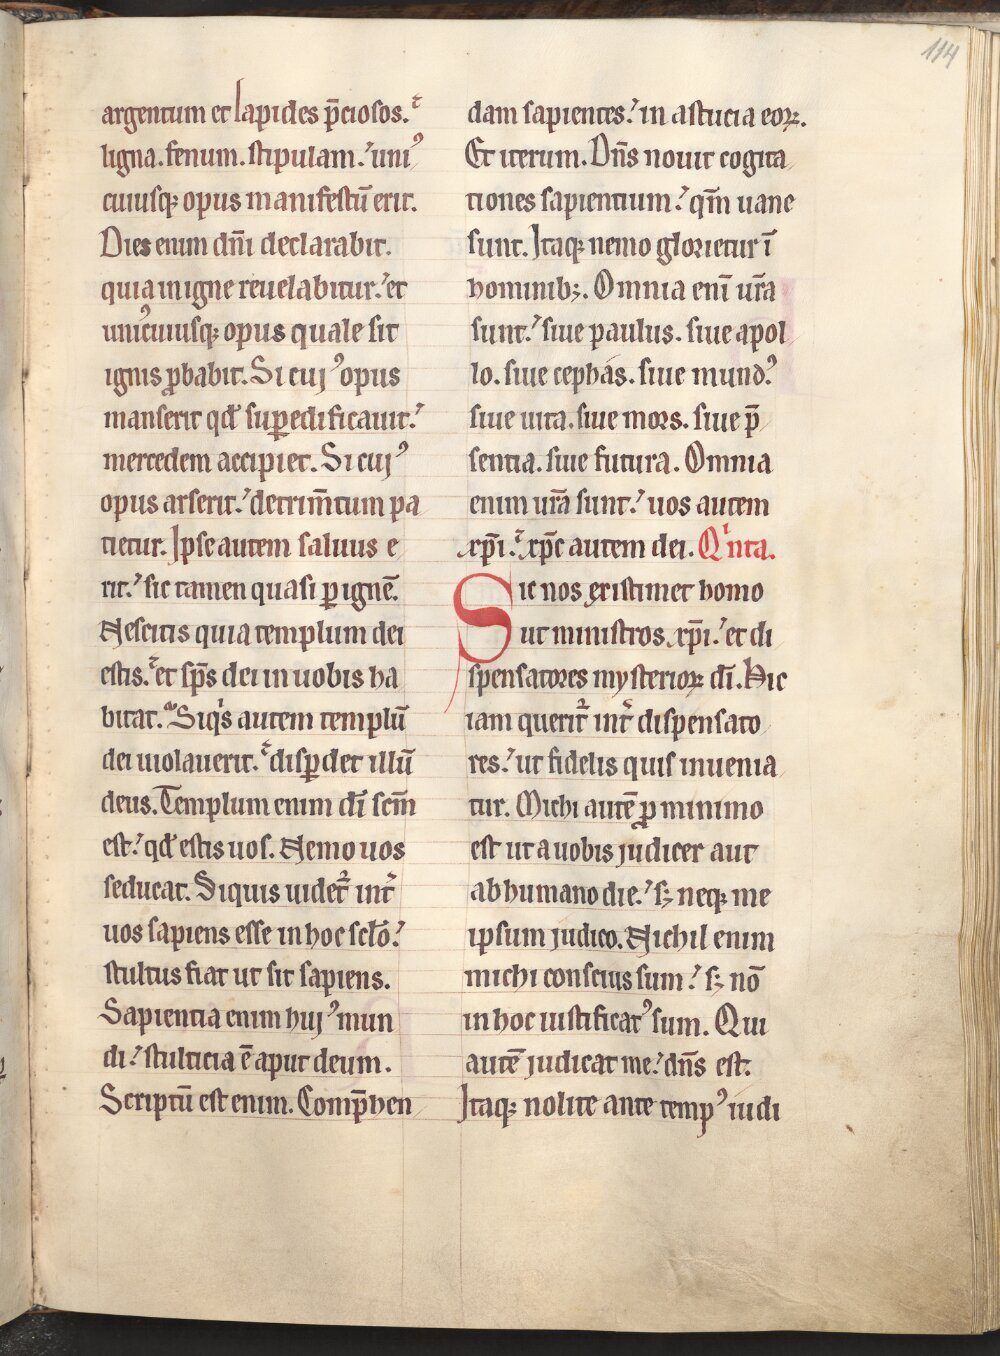 114
argentum et lapides p̄ciosos.
ligna. fenum. stipulam. uniꝰ
cuiusq; opus manifestū erit.
Dies enim dn̄i declarabit.
quia in igne reuelabitur. et
uniꝰcuiusq; opus quale sit
ignis ꝓbabit. Si cujꝰ opus
manserit qd̄ suꝑedificauit.
mercedem accipiet. Si cujꝰ
opus arserit. detrim̄tum pa
tietur. Ipse autem saluus e
rit. sic tamen quasi ꝑ ignē.
Nescitis quia templum dei
estis. et sp̄s dei in uobis ha
bitat. Siqis autem templū
dei uiolauerit. disꝑdet illū
deus. Templum enim dī scm̄
est. qd̄ estis uos. Nemo uos
seducat. Siquis uidet᷑ int᷑
uos sapiens esse in hoc sclo̅.
stultus fiat ut sit sapiens.
Sapientia enim hujꝰ mun
di. stulticia ē aput deum.
Scriptū est enim. Comp̄hen
dam sapientes. in astucia eoꝝ.
Et iterum. Dn̄s nouit cogita
tiones sapientium. qm̄ uane
sunt. Itaq; nemo glorietur ī
hominib;. Omnia enī ur̄a
sunt. siue paulus. siue apol
lo. siue cephas. siue mundꝰ.
siue uita. siue mors. siue p̄
sentia. siue futura. Omnia
enim ur̄a sunt. uos autem
xp̄i. xp̄c autem dei. Qinta.
Sic nos existimet homo
ut ministros xp̄i. et di
spensatores mysterioꝝ dī. Hic
iam querit᷑ int᷑ dispensato
res. ut fidelis quis inuenia
tur. Michi autē ꝓ minimo
est ut a uobis judicer aut
ab humano die. s; neq; me
ipsum judico. Nichil enim
michi conscius sum. s; nō
in hoc iustificatꝰ sum. Qui
autē judicat me. dn̄s est.
Itaq; nolite ante tempꝰ iudi